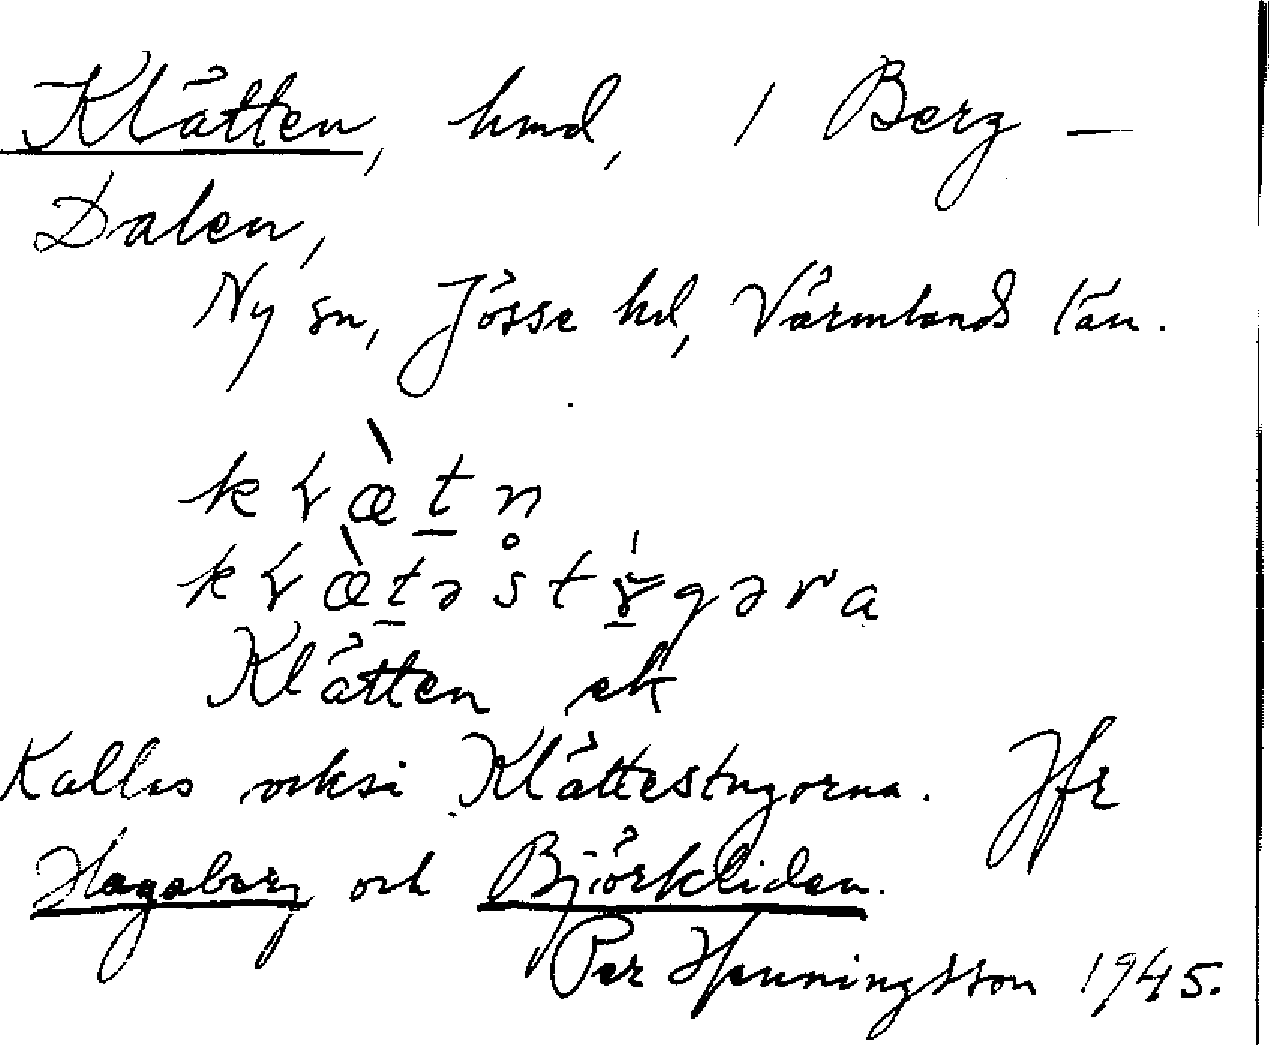 Klätten, hmd, 1 Berg –
Dalen,
Ny sn, Jösse hd, Värmlands län.
Klätten ek
Kallas också Klättestugorna. Jfr
Hagaberg och Björkliden.
Per Henningsson 1945.